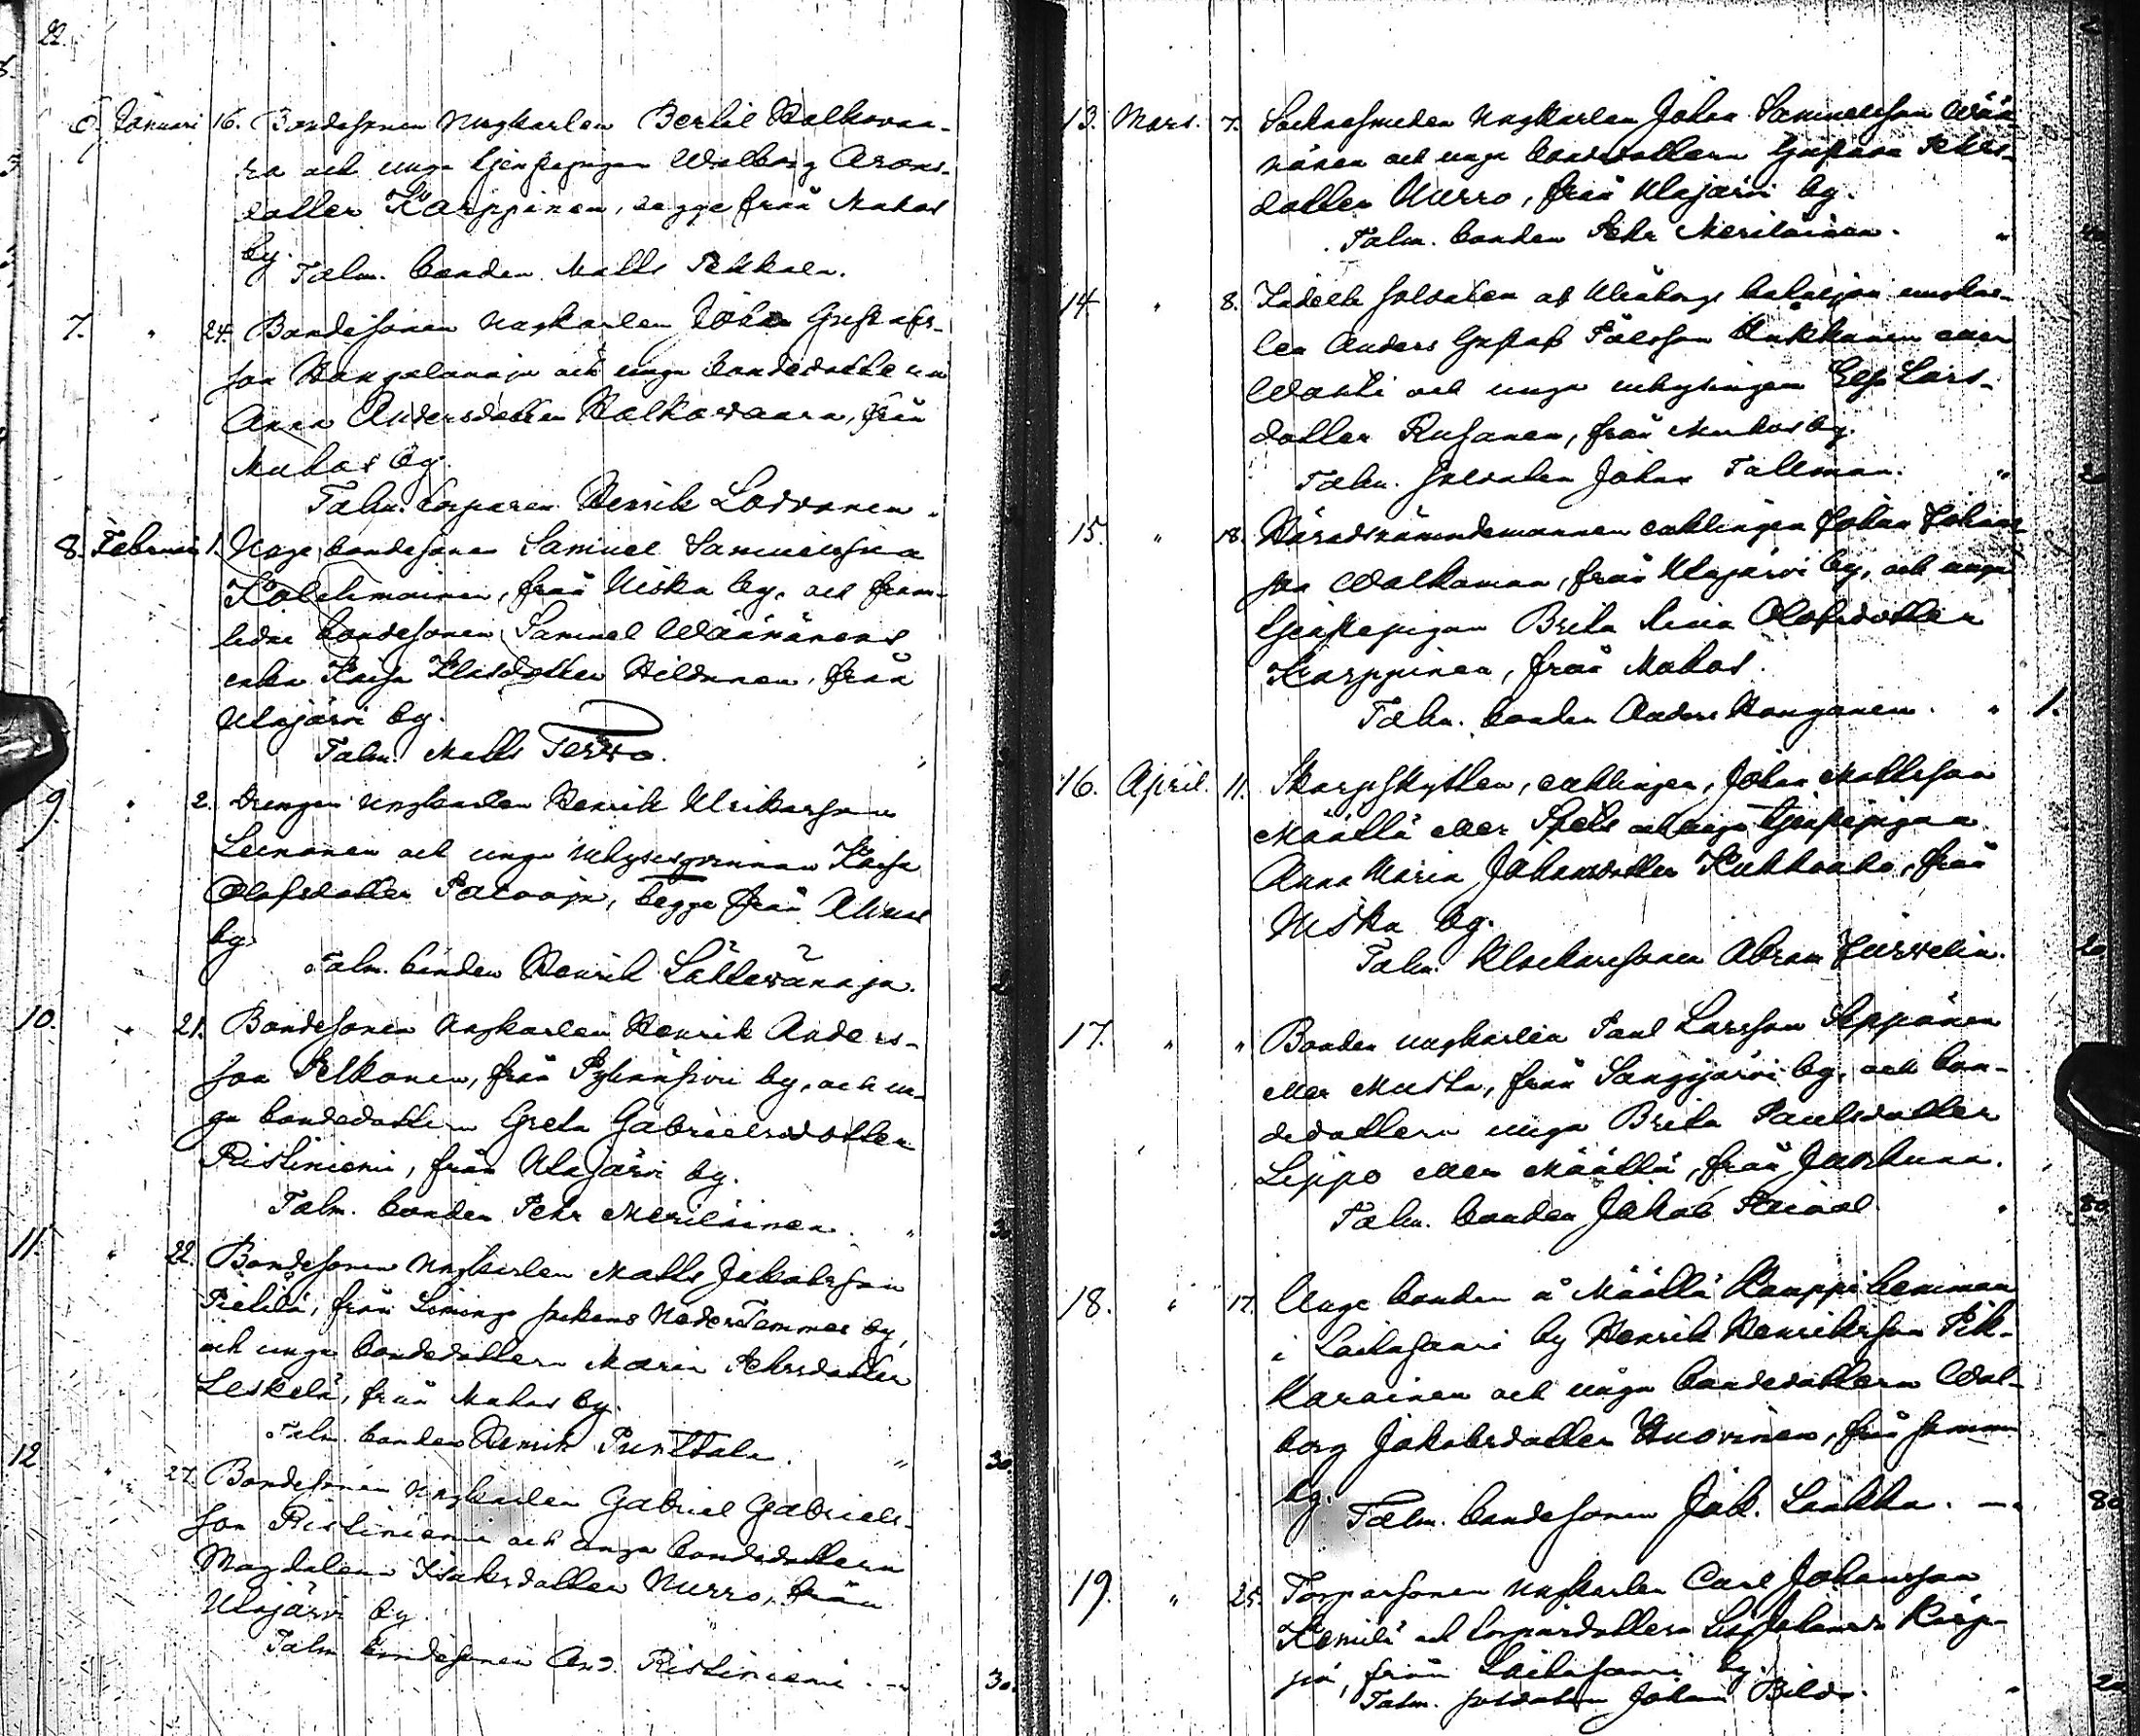 22.
6. Januari 16. Bondesonen Ungkarlen Bertil Walkovaa-
ra och unga tjenstepigan Walborg Arons-
dotter Karppinen, begge från Muhos
by.
Talm. bonden Matts Pekkala.
7. " 24. Bondesonen Ungkarlen Johan Gustafs-
son Hangelanaja och unga bondedottern
Anna Andersdotter Walkowaara, från
Muhos by.
Talm. torparen Henrik Lovvanen.
8. Februari 1. Unge bondesonen Samuel Samuelsson
Kolehmainen, från Niska by, och fram-
lidne bondesonen Samuel Wäänänens
enka Kaisa Klasdotter Hildunen, från
Utajärvi by.
Talm. Matts Terwo.
9. " 2. Drengen Ungkarlen Henrik Ulriksson
Leinonen och unga inhysesqvinnan Kaisa
Olofsdotter Patoaja, begge från Ahmas
by.
Talm. bonden Henrik Lättewänaja.
10. " 21. Bondesonen Ungkarlen Henrik Anders-
son Pelkonen, från Pyhänsivu by, och un-
ga bondedottern Greta Gabrielsdotter
Ristiniemi, från Utajärvi by.
Talm. bonden Pehr Meriläinen. " 30
11. " 22. Bondesonen Ungkarlen Matts Jakobsson
Pietilä, från Limingo sockens Neder Temmes by,
och unga bondedottern Maria Pehrsdotter
Leskelä, från Muhos by.
Talm. bonden Henrik Punttala. " 30.
12 " 27. Bondesonen Ungkarlen Gabriel Gabriels-
son Ristiniemi och unga bondedottern
Magdalena Isaksdotter Nurro, från
Utajärvi by.
Talm bondesonen And. Ristiniemi. " 30.
13. Mars. 7. Socknesmeden Ungkarlen Johan Samuelsson Wää-
nänen och unga bondedottern Gustava Pehrs-
dotter Nurro, från Utajärvi by.
Talm. bonden Pehr Meriläinen. "
14 " 8. Indelte soldaten af Uleåborgs bataljon ungkar-
len Anders Gustaf Pålsson Kukkonen eller
Wahti och unga inhysingen Elsa Lars-
dotter Rusanen, från Muhos by.
Talm. soldaten Johan Tallman. " 20
15. " 18. Häradsnämndemannen enklingen Johan Johans-
son Walkaman, från Utajärvi by, och unga
tjenstepigan Brita Lisa Olofsdotter
Karppinen, från Muhos.
Talm. bonden Anders Honganen. " 1.
16. April. 11. Skarpskytten, enklingen, Johan Mattsson
Määttä eller Spets och unga tjenstepigan
Anna Maria Johansdotter Kukkoaho, från
Niska by.
Talm. Klockaresonen Abram Jurvelin. 20
17. " " Bonden ungkarlen Paul Larsson Seppänen
eller Musta, från Sangijärvi by, och bon-
dedottern unga Brita Paulsdotter
Lippo eller Määttä, från Juorkuna.
Talm. bonden Jakob Keinäl. " 80
18. " 17. Unge bonden å Määttä Kauppi hemman
i Laitasaari by Henrik Henriksson Pik-
karainen och unga bondedottern Wal-
borg Jakobsdotter Huovinen, från samma
by.
Talm. bondesonen Jak. Laukka. " 80
19. " 25. Torparsonen ungkarlen Carl Johansson
Komulä och torpardottern Lisa Johansdr Karp-
pä, från Laitasaari by.
Talm. soldaten Johan Bild. " 20